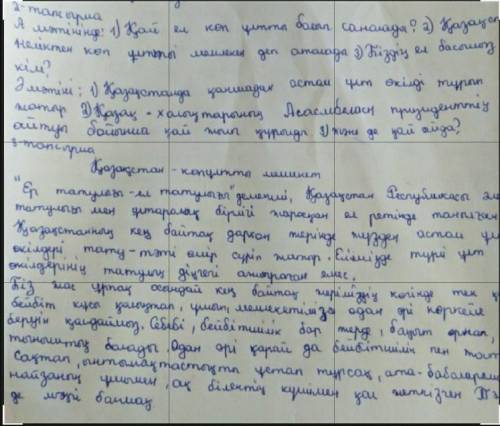 2-тапсырма
А мәтінінде: 1) Қай ел көп ұлтты болып саналады? 2) Қазақстан
неліктен көп ұлтты мемлекет деп аталады 3) Біздің ел басымыз
кім?
Ә мәтіні: 1) Қазақстанда қаншадан астам ұлт өкілді тұрып
жатыр 2) Қазақ - халықтарының Ассамблеясы призиденттің
айтуы бойынша қай жылы құрылды 3) және де қай айда?
3-тапсырма
Қазақстан - көпұлтты мемлекет
"Ер татулығы - ел татулығы" демекші, Қазақстан Республикасы
татулығы мен ұлтаралық бірлігі жарасқан ел ретінде танылған
Қазақстанның кең байтақ дархан жерінде жүзден астам
өкілдері тату-тәтті өмір сүріп жатыр. Елімізде түрлі ұлт
өкілдерінің татулық
Біз жас ұрпақ осындай кең байтақ жеріміздің көгінде тек қ
бейбіт күнге қалықтап, ұшып, мемлекетіміз одан әрі көркейе
беруін қалаймыз. Себебі, бейбітшілік бар жерде, бақыт орнап,
тыныштық болады. Одан әрі қарай да бейбітшілік пен
сақтап, ынтымақтастықты ұстап тұрсақ, ата-бабалары
найзаның ұшымен, ақ білектің күшімен қол жеткізген
де мәңгі